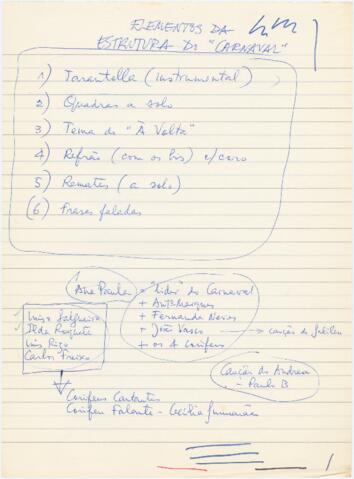 ELEMENTOS DA
ESTRUTURA DO "CARNAVAL"
1) Tarantella (instrumental)
2) Quadras a solo
3) Tema do "À Volta"
4) Refrão (com os bis) c/coro
5) Remates (a solo)
(6) Frases faladas
Ana Paula "Líder" do Carnaval
+ Antº Marques
+ Fernando Neves
+ João Vasco → canção do
+ os 4 Corifeus
Luísa Salgueiro
Ilda Roquete
Luís Rizo
Carlos Freixo
Canção do Andrea
- Paulo B
Corifeus Cantantes
Corifeu Falante - Cecília Guimarães